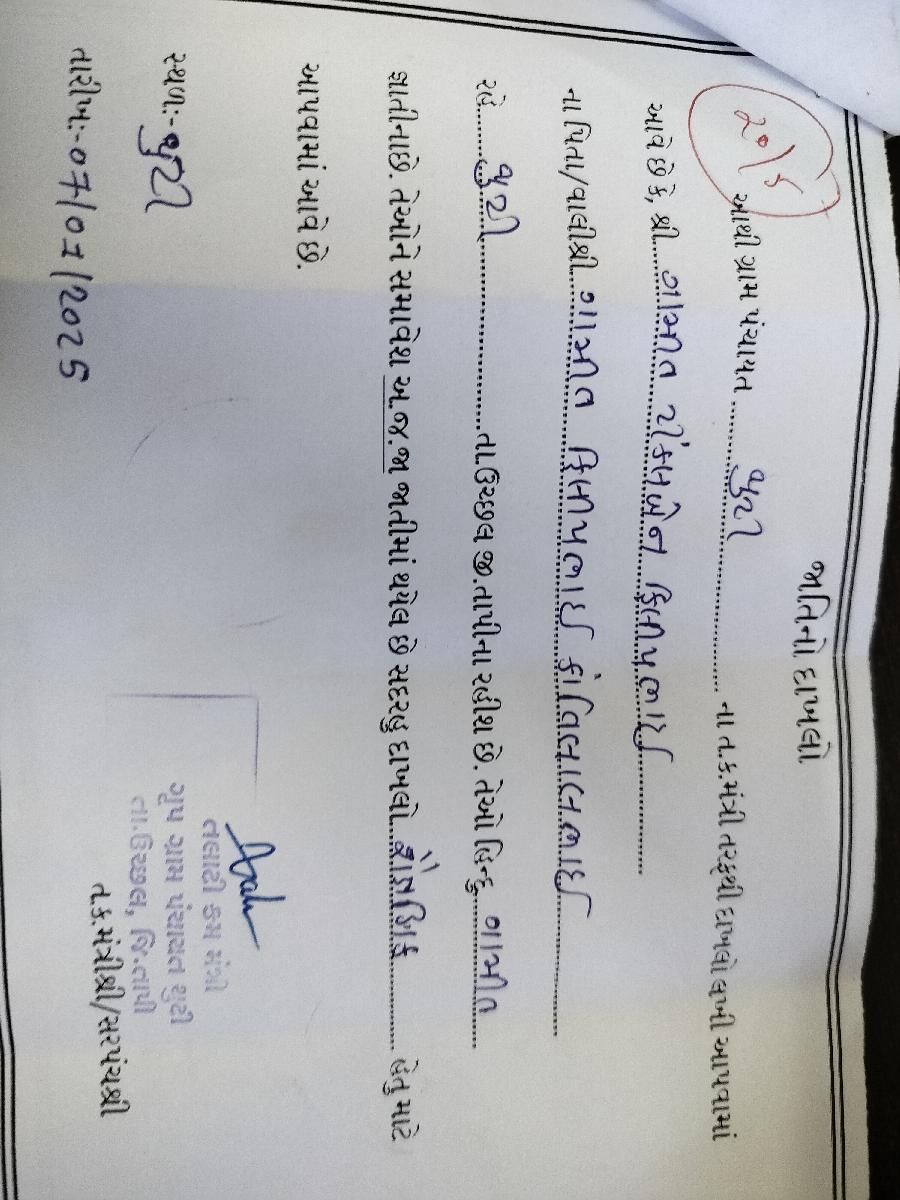 જાતિનો દાખલો
આથી ગ્રામ પંચાયત જુટી ના ત.ક.મંત્રી તરફથી દાખલો લખી આપવામાં
આવે છે કે, શ્રી ગામીત દિલીપભાઈ
ના પિતા/વાલીશ્રી ગામીત દિલીપભાઈ
રહે. જુટી તા.ઉચ્છલ જી.તાપીના રહીશ છે. તેઓ હિન્દુ ગામીત
જ્ઞાતીના છે. તેઓને સમાવેશ અ.જ.જા જાતીમાં થયેલ છે સદરહુ દાખલો શૈક્ષણિક હેતુ માટે
આપવામાં આવે છે.
સ્થળ:- જુટી
તારીખ:- 07/01/2025
તલાટી કમ મંત્રી
ગ્રામ પંચાયત જુટી
તા.ઉચ્છલ, જિ.તાપી
ત.ક.મંત્રીશ્રી/સરપંચશ્રી